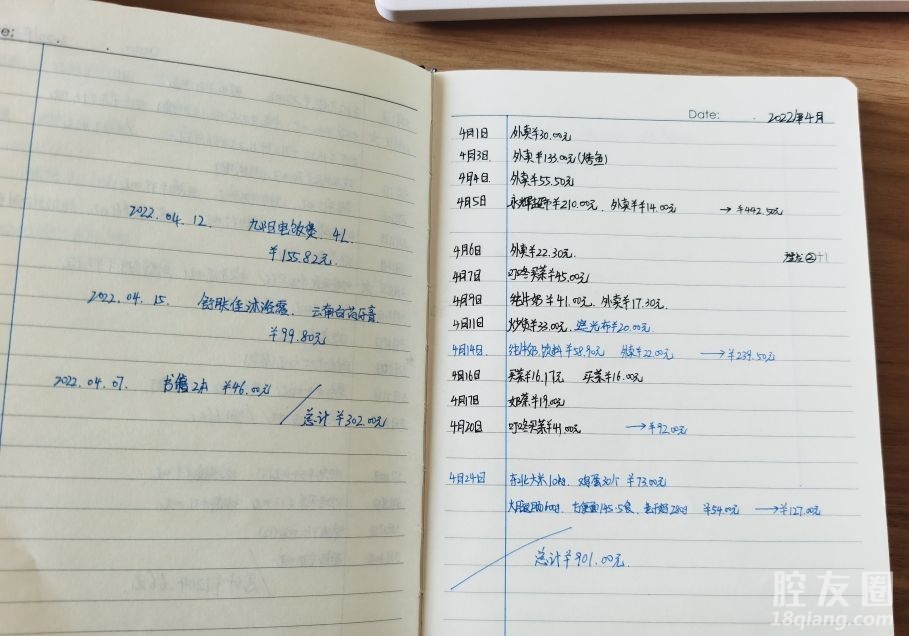 e:
2022.04.12. 九阳电饭煲.4L.
¥155.82元.
2022.04.15. 舒肤佳沐浴露. 云南白药牙膏.
¥99.80元.
2022.04.07. 书籍2本 ¥46.00元
总计¥302.00元
Date: 2022年4月
4月1日 外卖¥30.00元
4月3日 外卖¥133.00元(烤鱼)
4月4日 外卖¥55.50元
4月5日 永辉超市¥210.00元、外卖¥14.00元 →¥442.50元
4月6日 外卖¥22.30元 +1
4月7日 叮咚买菜¥45.00元
4月9日 纯牛奶¥41.00元、外卖¥17.30元
4月11日 炒货¥33.00元、遮光布¥20.00元
4月14日 纯牛奶.饮料¥58.90元 外卖¥22.00元 →¥239.50元
4月16日 买菜¥16.17元 买菜¥16.00元
4月17日 奶茶¥19.00元
4月20日 叮咚买菜¥41.00元 →¥92.00元
4月24日 东北大米10kg 鸡蛋30个 ¥73.00元
¥54.00元 →¥127.00元
总计¥901.00元.
腔友圈
18qiang.com